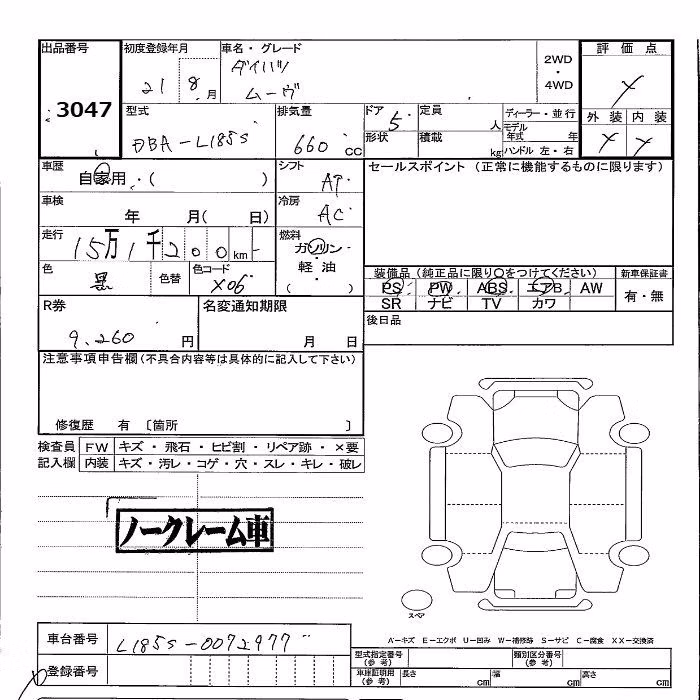 出品番号 初度登録年月 車名・グレード 2WD・4WD 評価点
3047 21 8月 ダイハツ
ムーヴ
型式 排気量 ドア 5 定員 人 ディーラー・並行 外装 内装
DBA-L185S 660cc 形状 積載 kg モデル年式 年
ハンドル 左・右
車歴 自家用・( ) シフト AT セールスポイント (正常に機能するものに限ります)
車検 年 月( 日) 冷房 AC
走行 15万1千200km 燃料 ガソリン・軽油 ( )
色 黒 色替 色コード X06 装備品 (純正品に限り○をつけてください) 新車保証書
PS PW ABS エアB AW 有・無
SR ナビ TV カワ
R券 名変通知期限 後日品
9,260円 月 日
注意事項申告欄 (不具合内容等は具体的に記入して下さい)
修復歴 有 〔箇所 〕
検査員 FW キズ・飛石・ヒビ割・リペア跡・×要
記入欄 内装 キズ・汚レ・コゲ・穴・スレ・キレ・破レ
ノークレーム車
スペア
A-キズ E-エクボ U-凹み W-補修跡 S-サビ C-腐食 XX-交換済
車台番号 L185S-0072977
登録番号
型式指定番号 (参考) 類別区分番号 (参考)
車庫証明用 (参考) 長さ cm 幅 cm 高さ cm